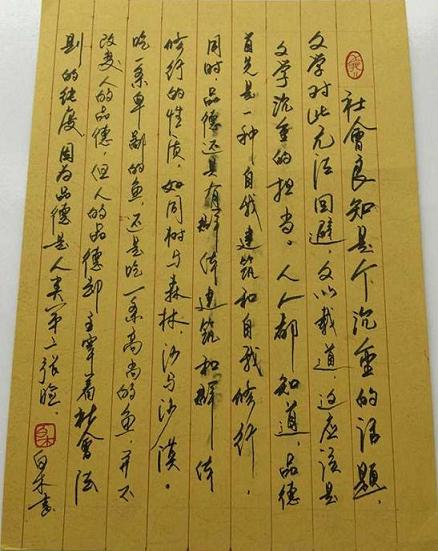 社會良知是个沉重的话题，
文学对此无法回避，文以载道，这应该是
文学沉重的担当。人人都知道，品德
首先是一种自我建筑和自我修行，
同时，品德还具有群体建筑和群体
修行的性质，如同树与森林，沙与沙漠。
吃一条卑鄙的鱼，还是吃一条高尚的鱼，并不
改变人的品德，但人的品德却主宰着社會法
则的纯度，因为品德是人类第二张脸。
白木书